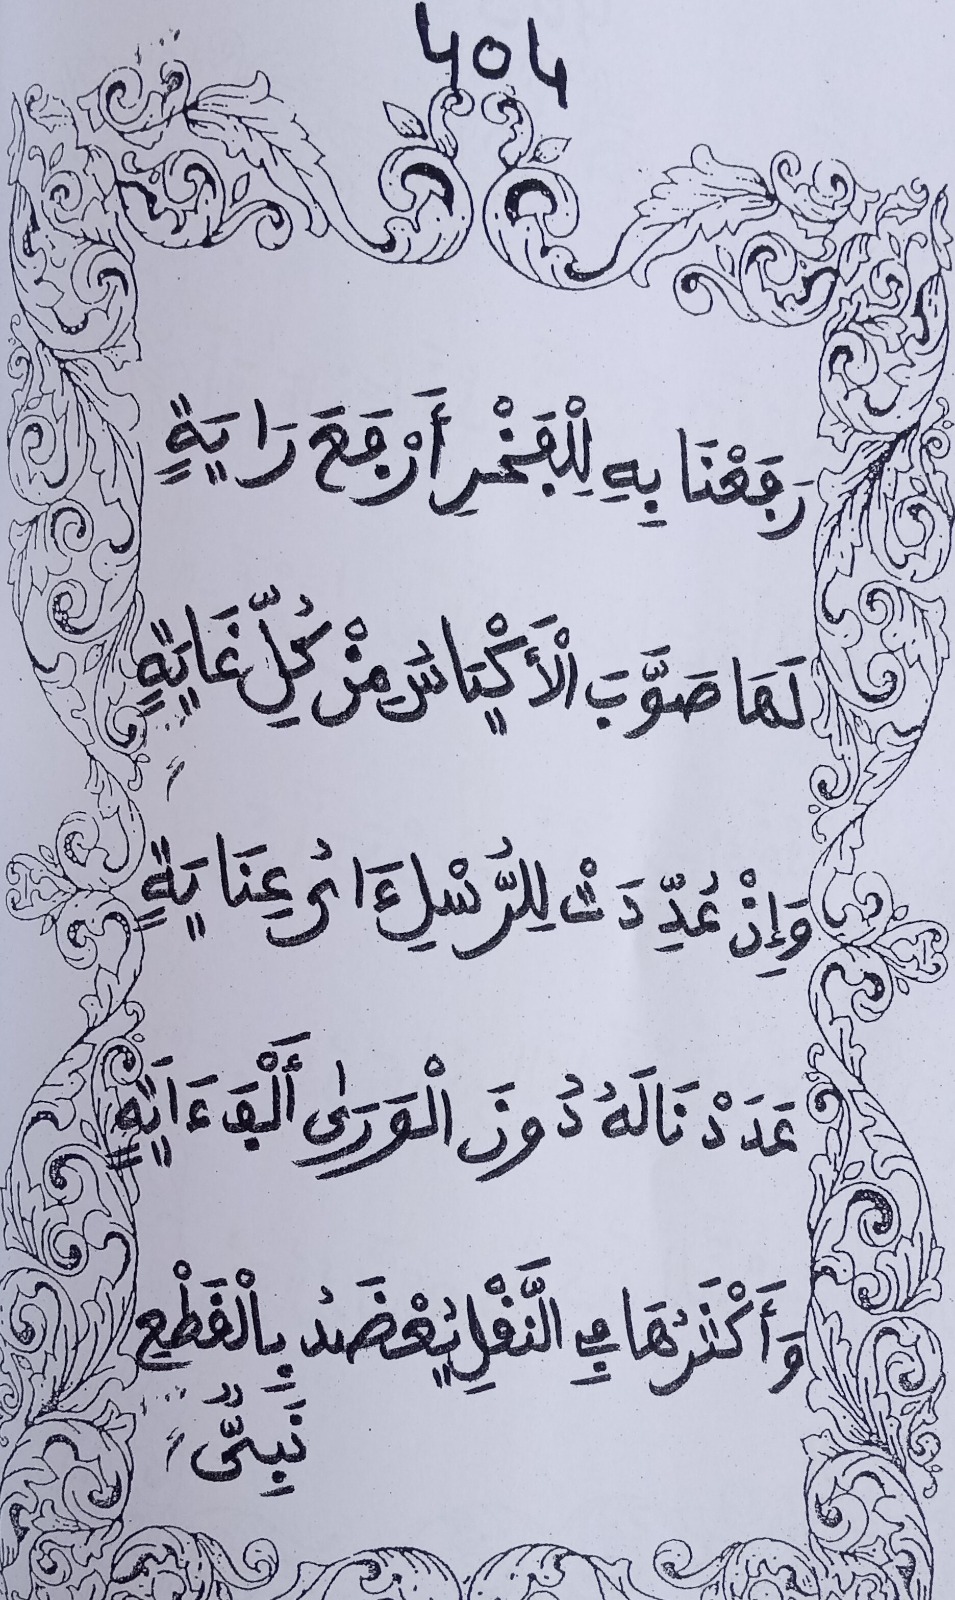 404
رَفَعْنَا بِهِ لِلْفَخْرِ أَرْفَعَ رَايَةٍ
لَهَا صَوَّبَ الْأَكْيَاسُ مِنْ كُلِّ غَايَةٍ
وَإِنْ عُدِّدَتْ لِلرُّسْلِ ءَاىُ عِنَايَةٍ
عَدَدْنَا لَهُ دُونَ الْوَرَىٰ أَلْفَ ءَايَةٍ
وَأَكْثَرُهَا فِي النَّقْلِ يُعْضَدُ بِالْقَطْعِ
نَبِىٌّ